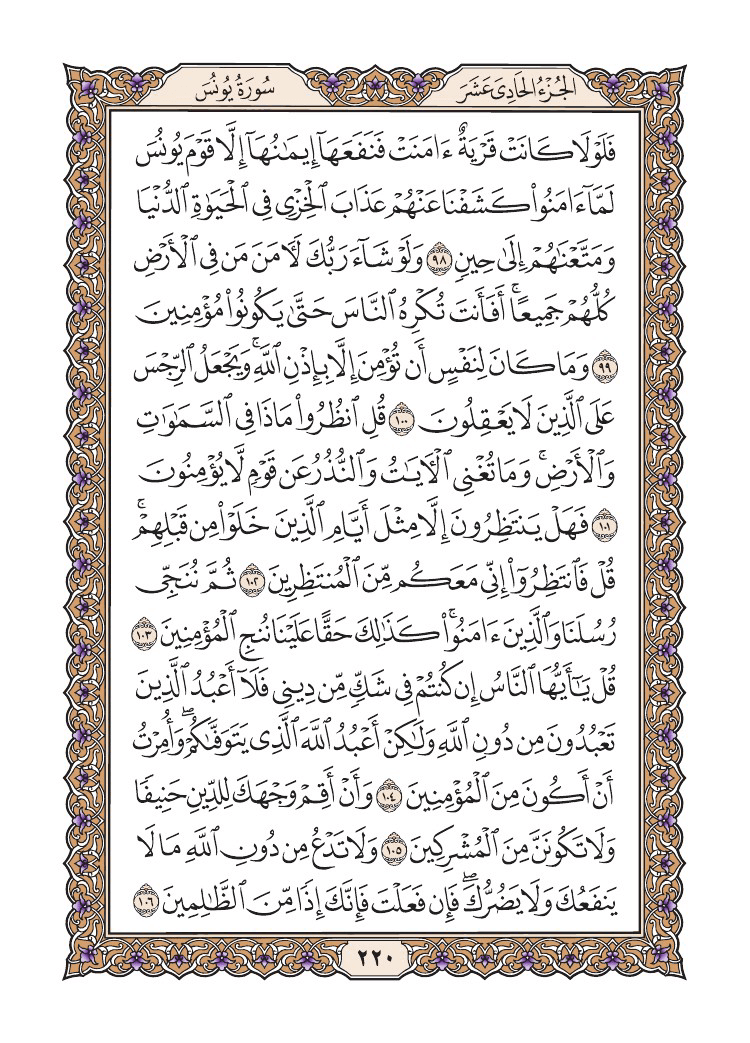 الجُزْءُ الحَادِىَ عَشَرَ
سُورَةُ يُونُسَ
فَلَوۡلَا كَانَتۡ قَرۡيَةٌ ءَامَنَتۡ فَنَفَعَهَآ إِيمَٰنُهَآ إِلَّا قَوۡمَ يُونُسَ
لَمَّآ ءَامَنُواْ كَشَفۡنَا عَنۡهُمۡ عَذَابَ ٱلۡخِزۡيِ فِي ٱلۡحَيَوٰةِ ٱلدُّنۡيَا
وَمَتَّعۡنَٰهُمۡ إِلَىٰ حِينٖ ٩٨ وَلَوۡ شَآءَ رَبُّكَ لَأٓمَنَ مَن فِي ٱلۡأَرۡضِ
كُلُّهُمۡ جَمِيعًاۚ أَفَأَنتَ تُكۡرِهُ ٱلنَّاسَ حَتَّىٰ يَكُونُواْ مُؤۡمِنِينَ
٩٩ وَمَا كَانَ لِنَفۡسٍ أَن تُؤۡمِنَ إِلَّا بِإِذۡنِ ٱللَّهِۚ وَيَجۡعَلُ ٱلرِّجۡسَ
عَلَى ٱلَّذِينَ لَا يَعۡقِلُونَ ١٠٠ قُلِ ٱنظُرُواْ مَاذَا فِي ٱلسَّمَٰوَٰتِ
وَٱلۡأَرۡضِۚ وَمَا تُغۡنِي ٱلۡأٓيَٰتُ وَٱلنُّذُرُ عَن قَوۡمٖ لَّا يُؤۡمِنُونَ
١٠١ فَهَلۡ يَنتَظِرُونَ إِلَّا مِثۡلَ أَيَّامِ ٱلَّذِينَ خَلَوۡاْ مِن قَبۡلِهِمۡۚ
قُلۡ فَٱنتَظِرُوٓاْ إِنِّي مَعَكُم مِّنَ ٱلۡمُنتَظِرِينَ ١٠٢ ثُمَّ نُنَجِّي
رُسُلَنَا وَٱلَّذِينَ ءَامَنُواْۚ كَذَٰلِكَ حَقًّا عَلَيۡنَا نُنجِ ٱلۡمُؤۡمِنِينَ ١٠٣
قُلۡ يَٰٓأَيُّهَا ٱلنَّاسُ إِن كُنتُمۡ فِي شَكّٖ مِّن دِينِي فَلَآ أَعۡبُدُ ٱلَّذِينَ
تَعۡبُدُونَ مِن دُونِ ٱللَّهِ وَلَٰكِنۡ أَعۡبُدُ ٱللَّهَ ٱلَّذِي يَتَوَفَّىٰكُمۡۖ وَأُمِرۡتُ
أَنۡ أَكُونَ مِنَ ٱلۡمُؤۡمِنِينَ ١٠٤ وَأَنۡ أَقِمۡ وَجۡهَكَ لِلدِّينِ حَنِيفٗا
وَلَا تَكُونَنَّ مِنَ ٱلۡمُشۡرِكِينَ ١٠٥ وَلَا تَدۡعُ مِن دُونِ ٱللَّهِ مَا لَا
يَنفَعُكَ وَلَا يَضُرُّكَۖ فَإِن فَعَلۡتَ فَإِنَّكَ إِذٗا مِّنَ ٱلظَّٰلِمِينَ ١٠٦
٢٢٠